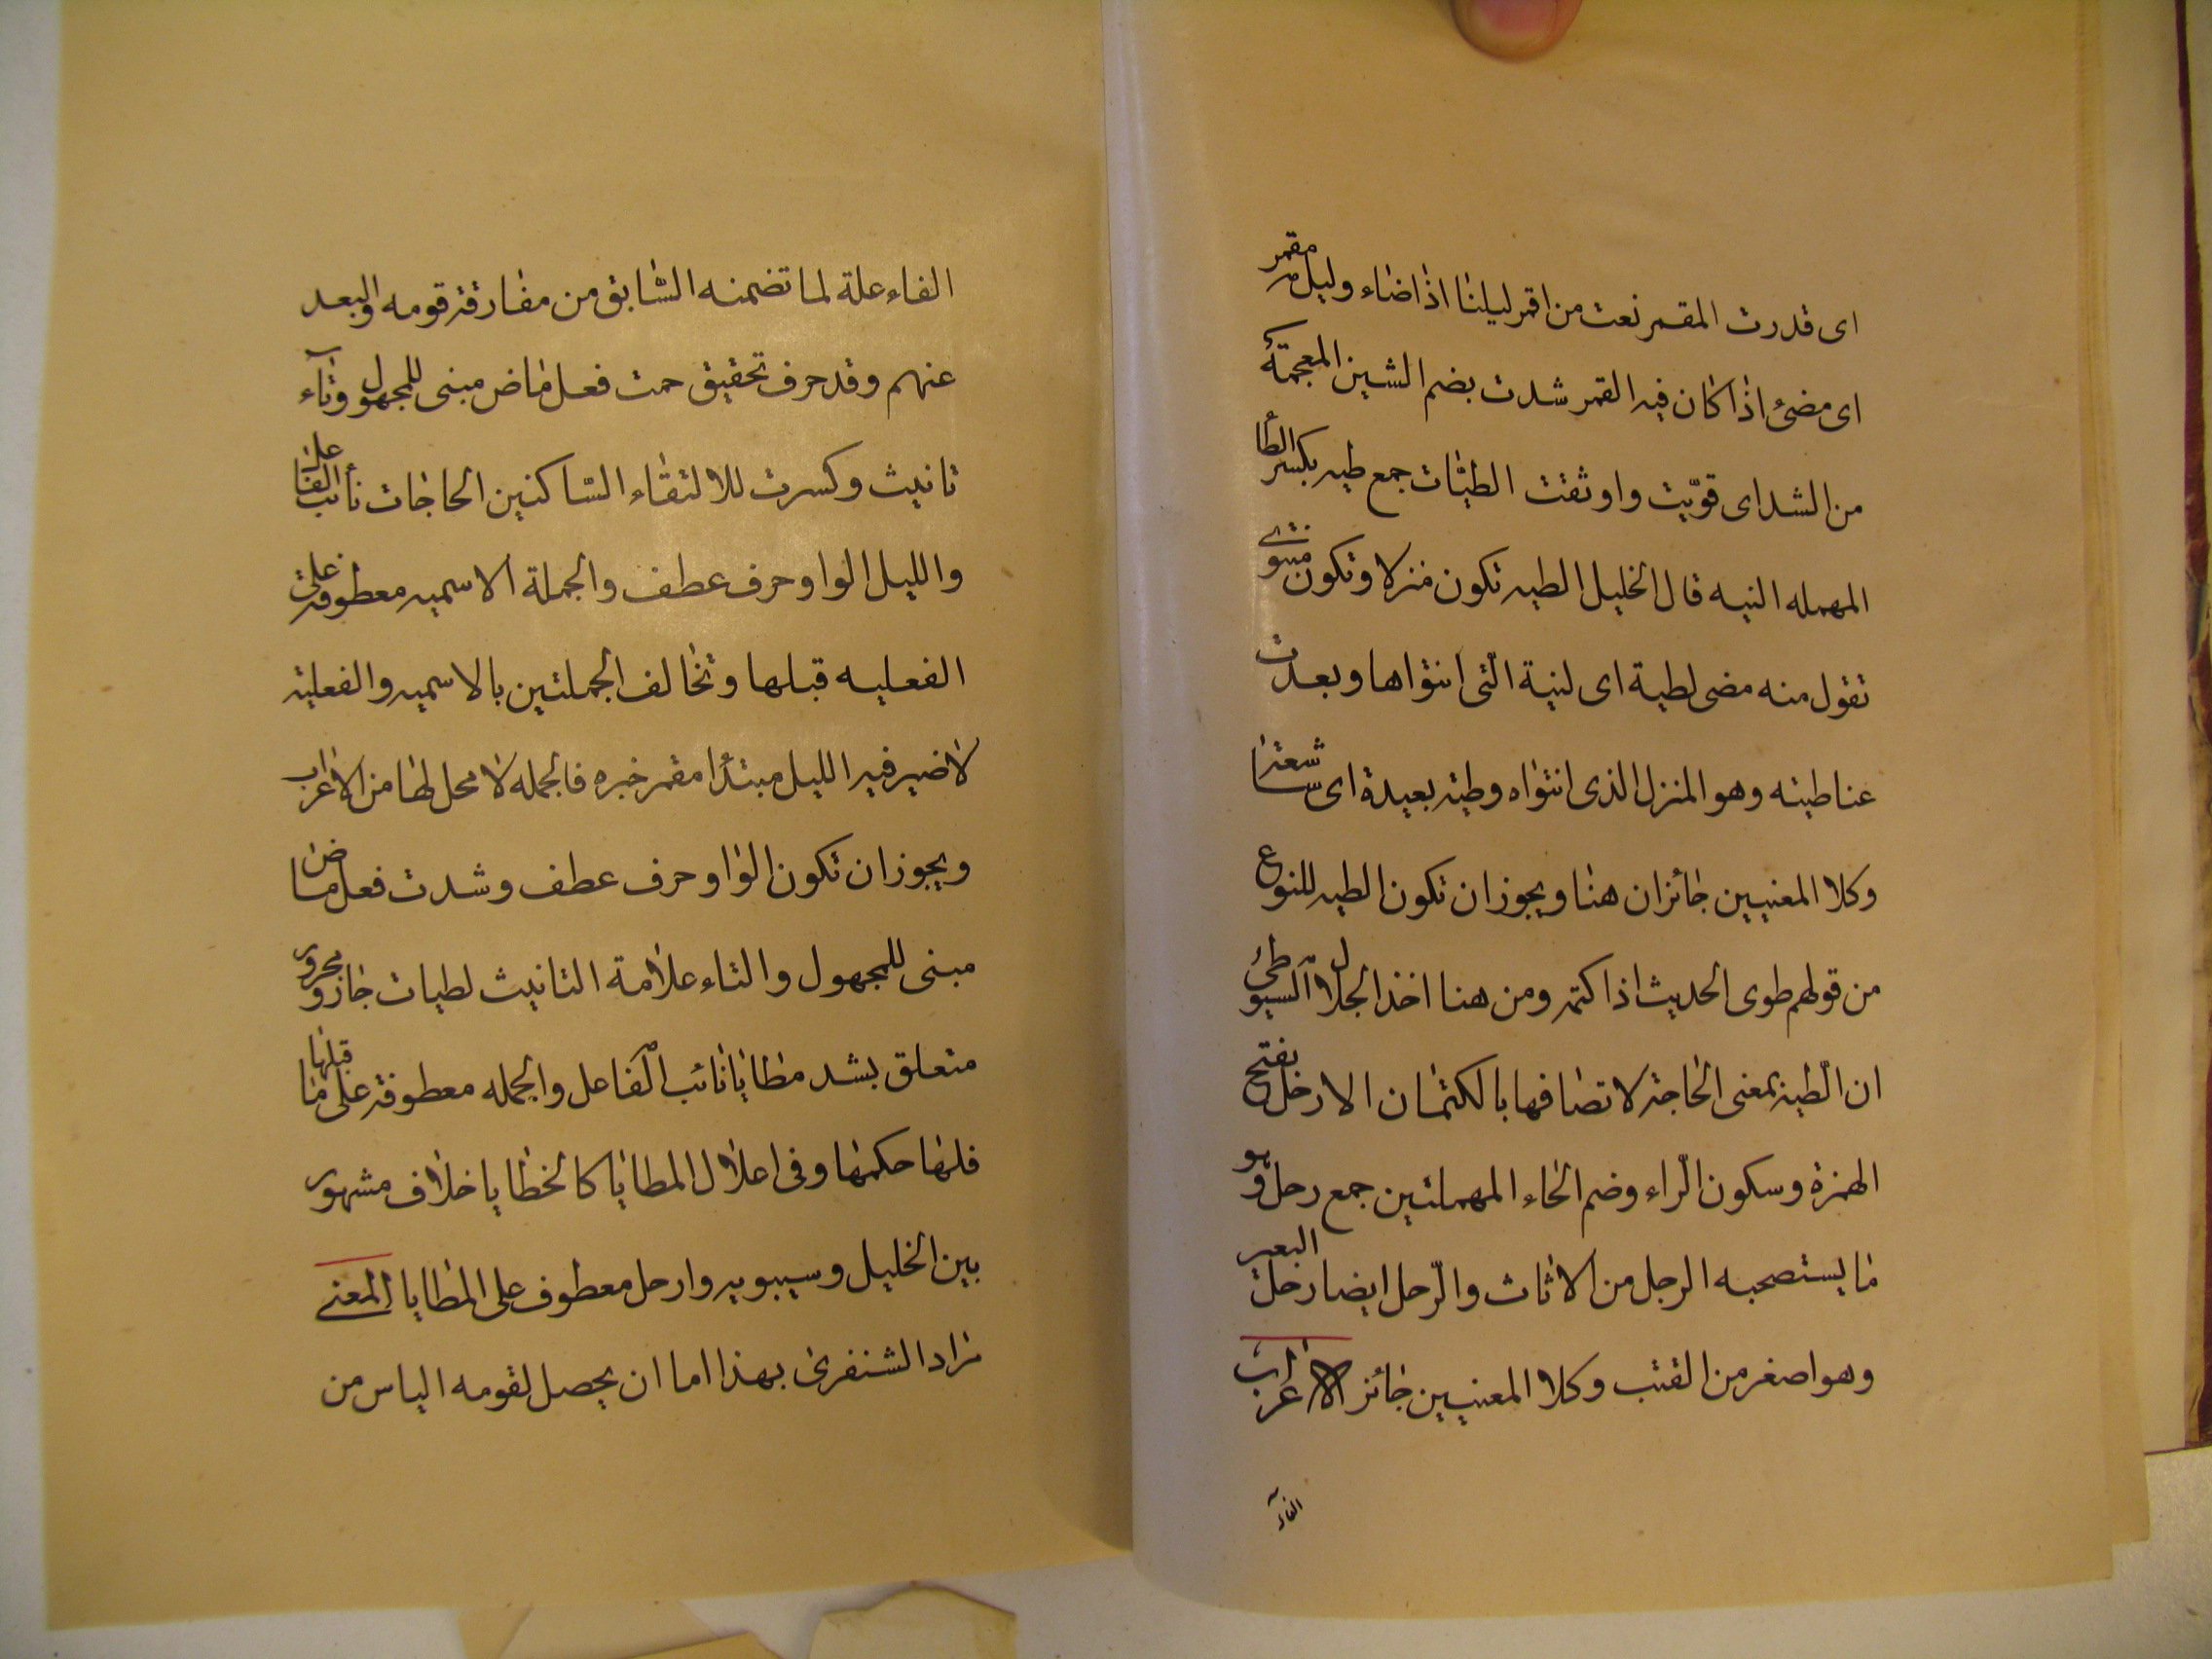 اى قدرت المقمر نعت من اقمر ليلنا اذا اضاء وليل مقمر
اى مضئ اذا كان فيه القمر شدت بضم الشين المعجمة
من الشد اى قويّت واوثقت الطيّات جمع طيه بكسر الطأ
المهمله النيه قال الخليل الطيه تكون منزلا وتكون منتوى
تقول منه مضى لطية اى لنية الّتى انتواها وبعدت
عنا طيته وهو المنزل الذى انتواه وطية بعيدة اى شاسعة
وكلا المعنيين جائزان هنا ويجوز ان تكون الطيه للنوع
من قولهم طوى الحديث اذا كتمه ومن هنا اخذ الجلال السيوطى
ان الّطية بمعنى الحاجة لاتصافها بالكتمان الارحل بفتح
الهمزة وسكون الّراء وضم الحاء المهملتين جمع رحل وهو
ما يستصحبه الرجل من الاثاث والّرحل ايضا رحل البعير
وهو اصغر من القتب وكلا المعنيين جائز الاعراب
الفاء
الفاء علة لما تضمنه السّابق من مفارقة قومه والبعد
عنهم وقد حرف تحقيق حمت فعل ماض مبنى للمجهول وتآء
تانيث وكسرت للالتقاء السّاكنين الحاجات نأئب الفاعل
والليل الواو حرف عطف والجملة الاسميه معطوفة على
الفعليه قبلها وتخالف الجملتين بالاسميه والفعلية
لاضير فيه الليل مبتدأ مقمر خبره فالجمله لا محل لها من الاعراب
ويجوز ان تكون الواو حرف عطف وشدت فعل ماض
مبنى للمجهول والتاء علامة التانيث لطيات جار ومجرور
متعلق بشد مطايا نائب الفاعل والجمله معطوفة على ما قبلها
فلها حكمها وفى اعلال المطايا كالخطايا خلاف مشهور
بين الخليل وسيبويه وارحل معطوف على المطايا المعنى
مراد الشنفرى بهذا اما ان يحصل لقومه الياس من